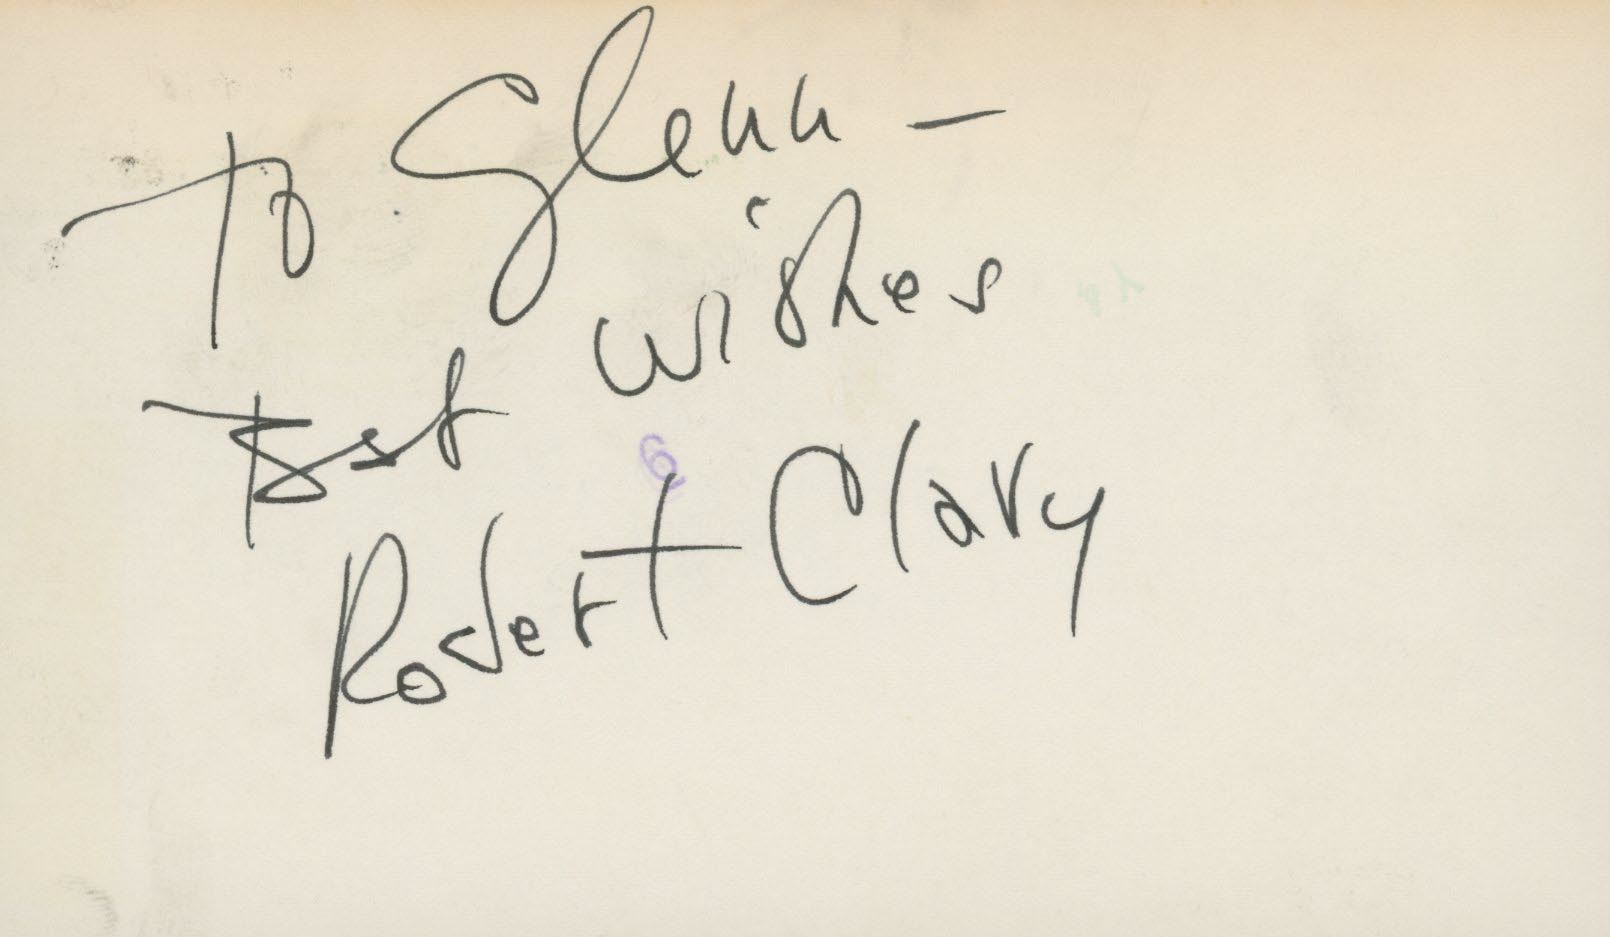 To Glenn —
Best wishes
Robert Clary